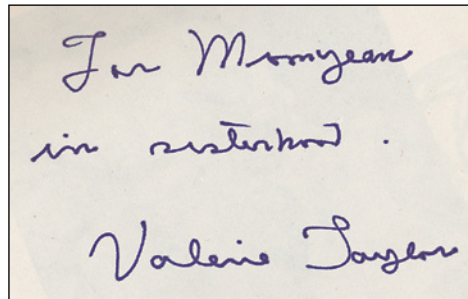 For Momyean
in sisterhood.
Valerie Taylor